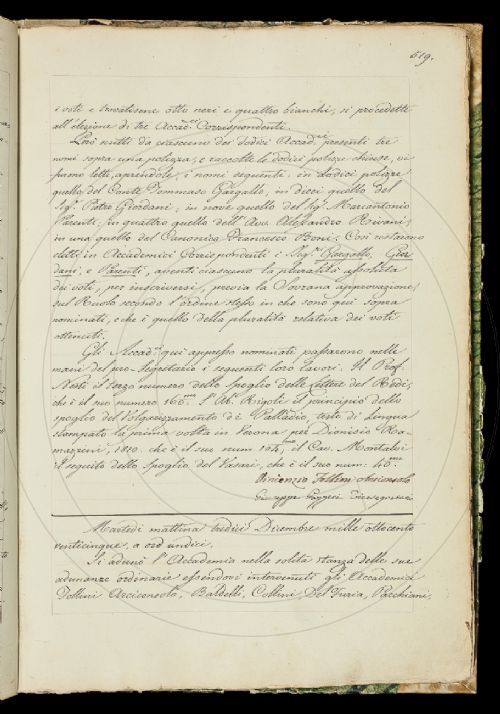 519.
i voti e trovatisene otto neri e quattro bianchi, si procedette
all'elezione di tre Accad.ci Corrispondenti.
Però scritti da ciascuno dei dodici Accad.ci presenti tre
nomi sopra una polizza, e raccolte le dodici polizze chiuse, vi
furono letti, aprendole, i nomi seguenti: in dodici polizze
quello del Conte Tommaso Gargallo, in dieci quello del
Sig.r Pietro Giordani, in nove quello del Sig.r Marcantonio
Parenti, in quattro quello dell'Avv. Alessandro Rivani,
in una quello del Canonico Francesco Boni; Così restarono
eletti in Accademici Corrispondenti i Sig.ri Gargallo, Gior
dani, e Parenti, aventi ciascuno la pluralità assoluta
dei voti, per inscriversi, previa la Sovrana approvazione,
nel Ruolo secondo l'ordine stesso in che sono qui sopra
nominati, e che è quello della pluralità relativa dei voti
ottenuti.
Gli Accad.ci qui appresso nominati passarono nelle
mani del pro-Segretario i seguenti loro lavori. Il Prof.
Nesti il terzo numero dello spoglio delle Lettere del Redi,
che è il suo numero 160.mo L'Ab. Rigoli il principio dello
spoglio del Volgarizzamento di Palladio, testo di Lingua
stampato la prima volta in Verona per Dionisio Ra-
manzini, 1810. che è il suo num 194.mo, il Cav. Montalvi
il seguito dello Spoglio del Vasari, che è il suo num. 40.mo
Vincenzio Follini Arciconsolo
Giuseppe
Martedì mattina tredici Dicembre mille ottocento
venticinque, a ore undici.
Si adunò l'Accademia nella solita stanza delle sue
adunanze ordinarie essendovi intervenuti gli Accademici
Follini Arciconsolo, Baldelli, Collini, Del Furia, Pacchiani,